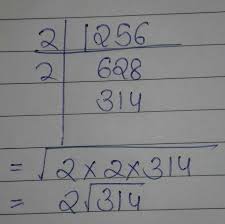 2 | 1256
2 | 628
| 314
= √2×2×314
= 2√314